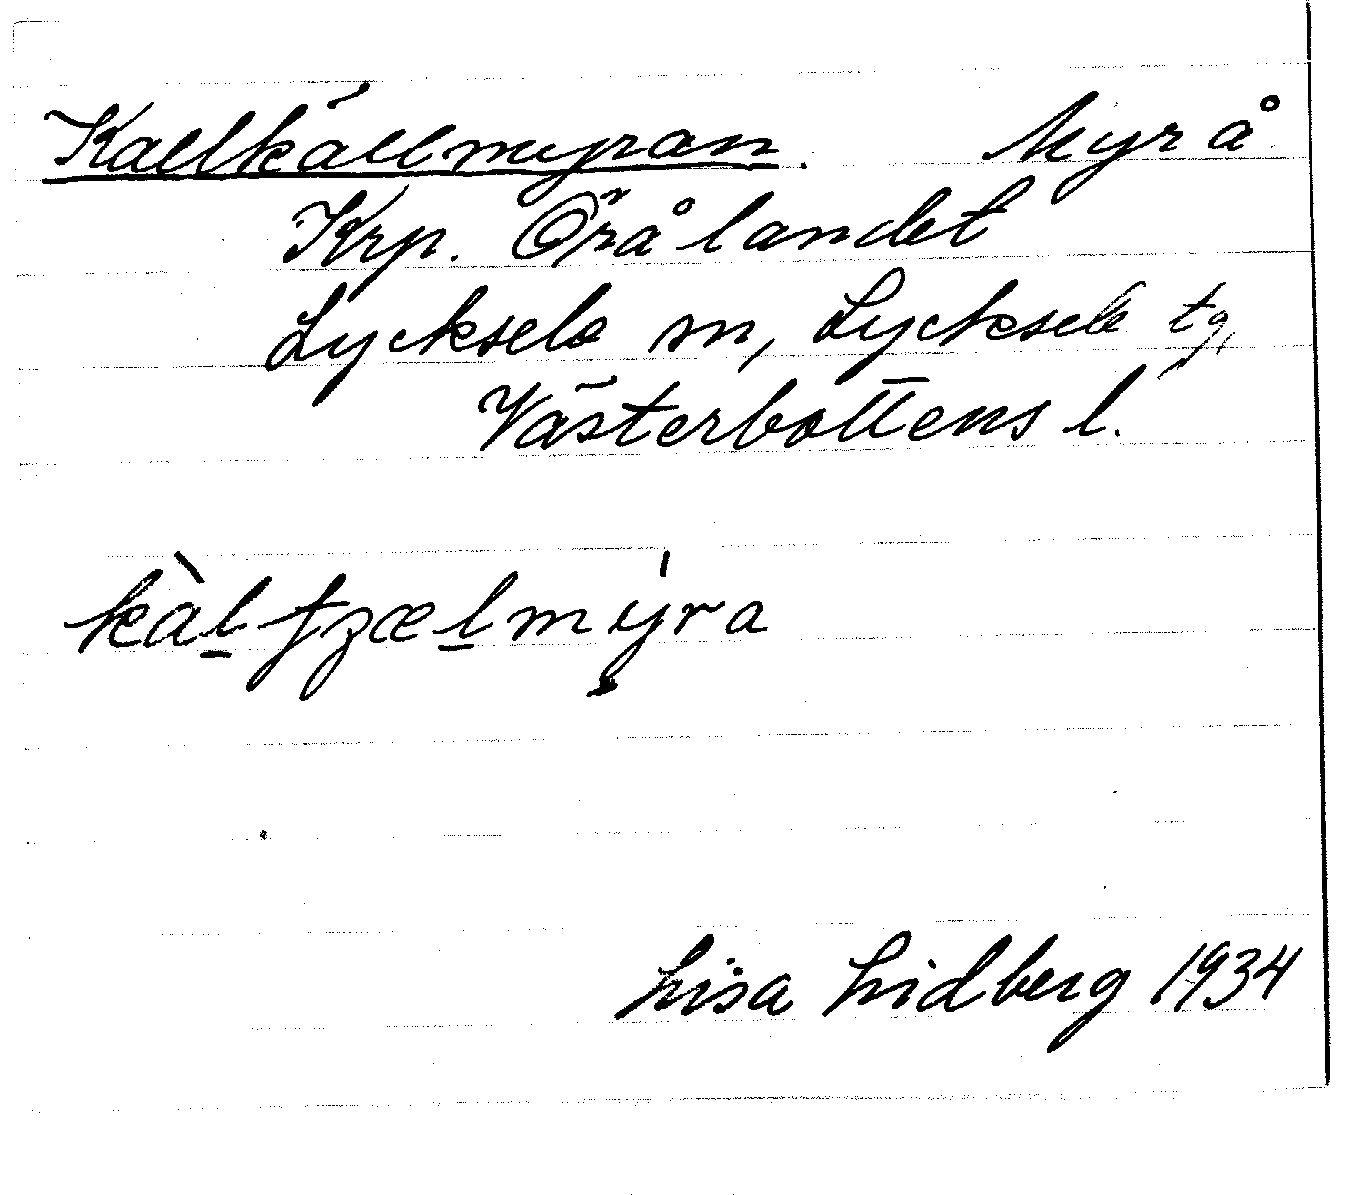 Kallkällmyran. Myr å
Krp. Örålandet
Lycksele sn, Lycksele tg,
Västerbottens l.
kàl̠tʒæl̠mýra
Lisa Lidberg 1934